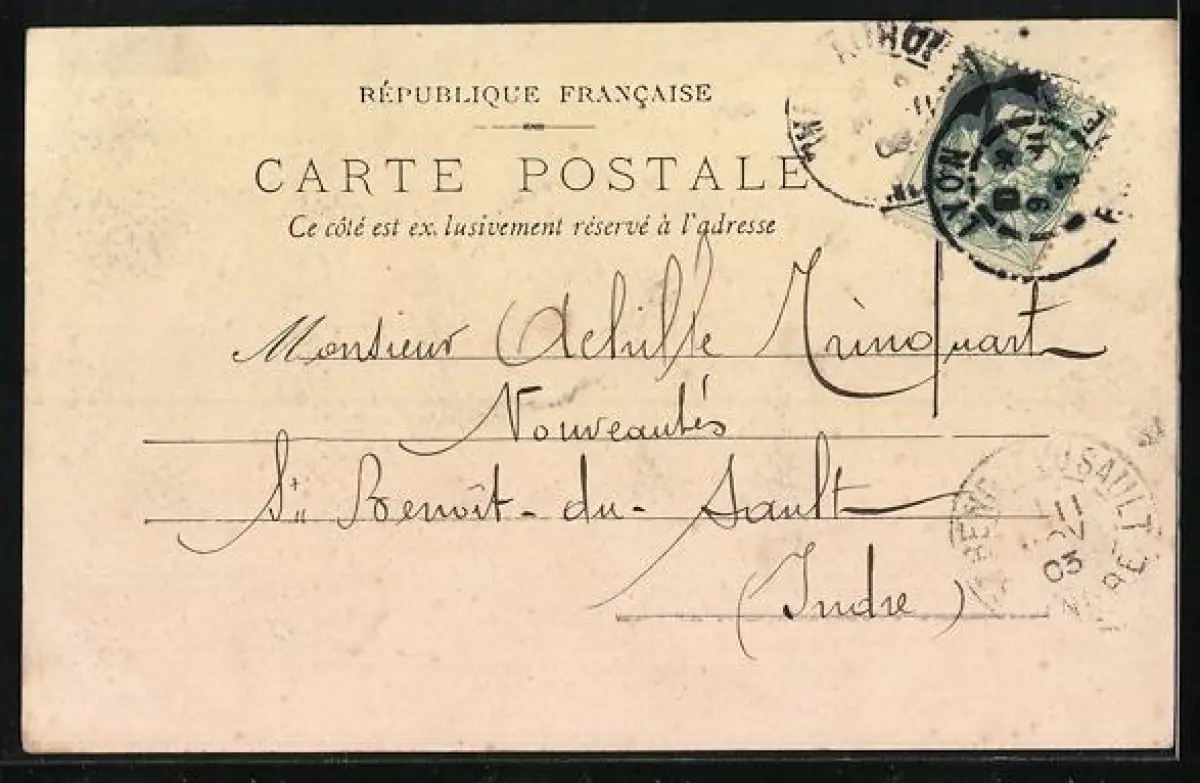 RÉPUBLIQUE FRANÇAISE
CARTE POSTALE
Ce côté est ex.lusivement réservé à l'adresse
LYON
Monsieur Achille Trinquart
Nouveautés
St Benoît-du-Sault
(Indre)
SAULT
11
03